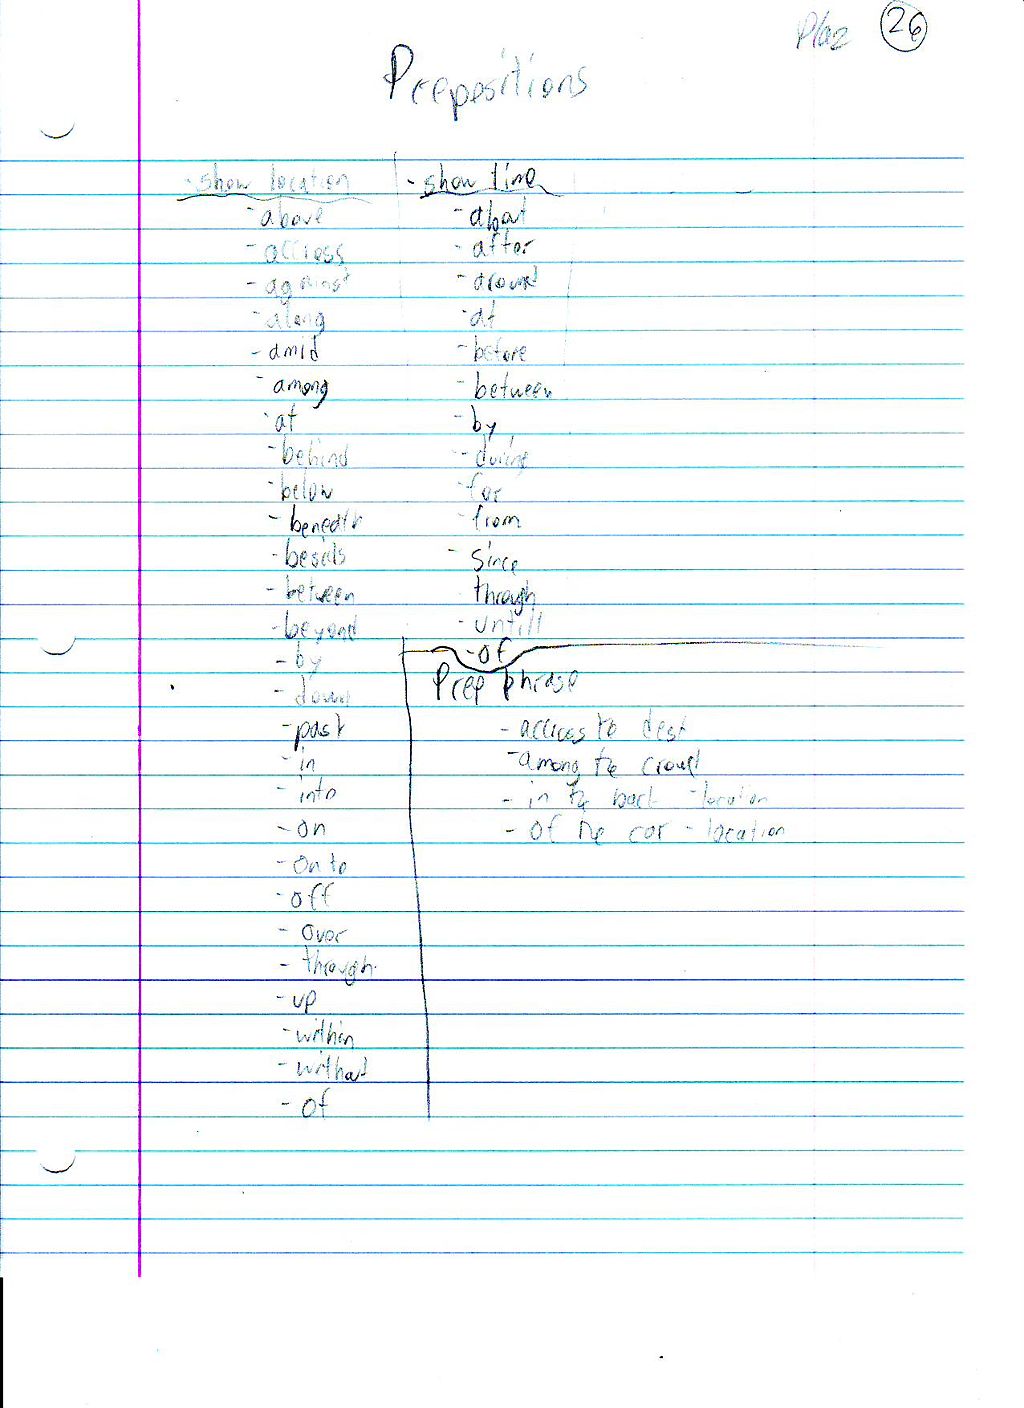 26
Prepositions
- show location
- above
- accross
- against
- along
- amid
- among
- at
- behind
- below
- beneath
- besids
- between
- beyond
- by
- down
- past
- in
- into
- on
- onto
- off
- over
- through
- up
- within
- without
- of
- show time
- about
- after
- around
- at
- before
- between
- by
- during
- for
- from
- since
- through
- untill
- of
Prep phrase
- accross
- among the crowd
- in the back - location
- of the car - location